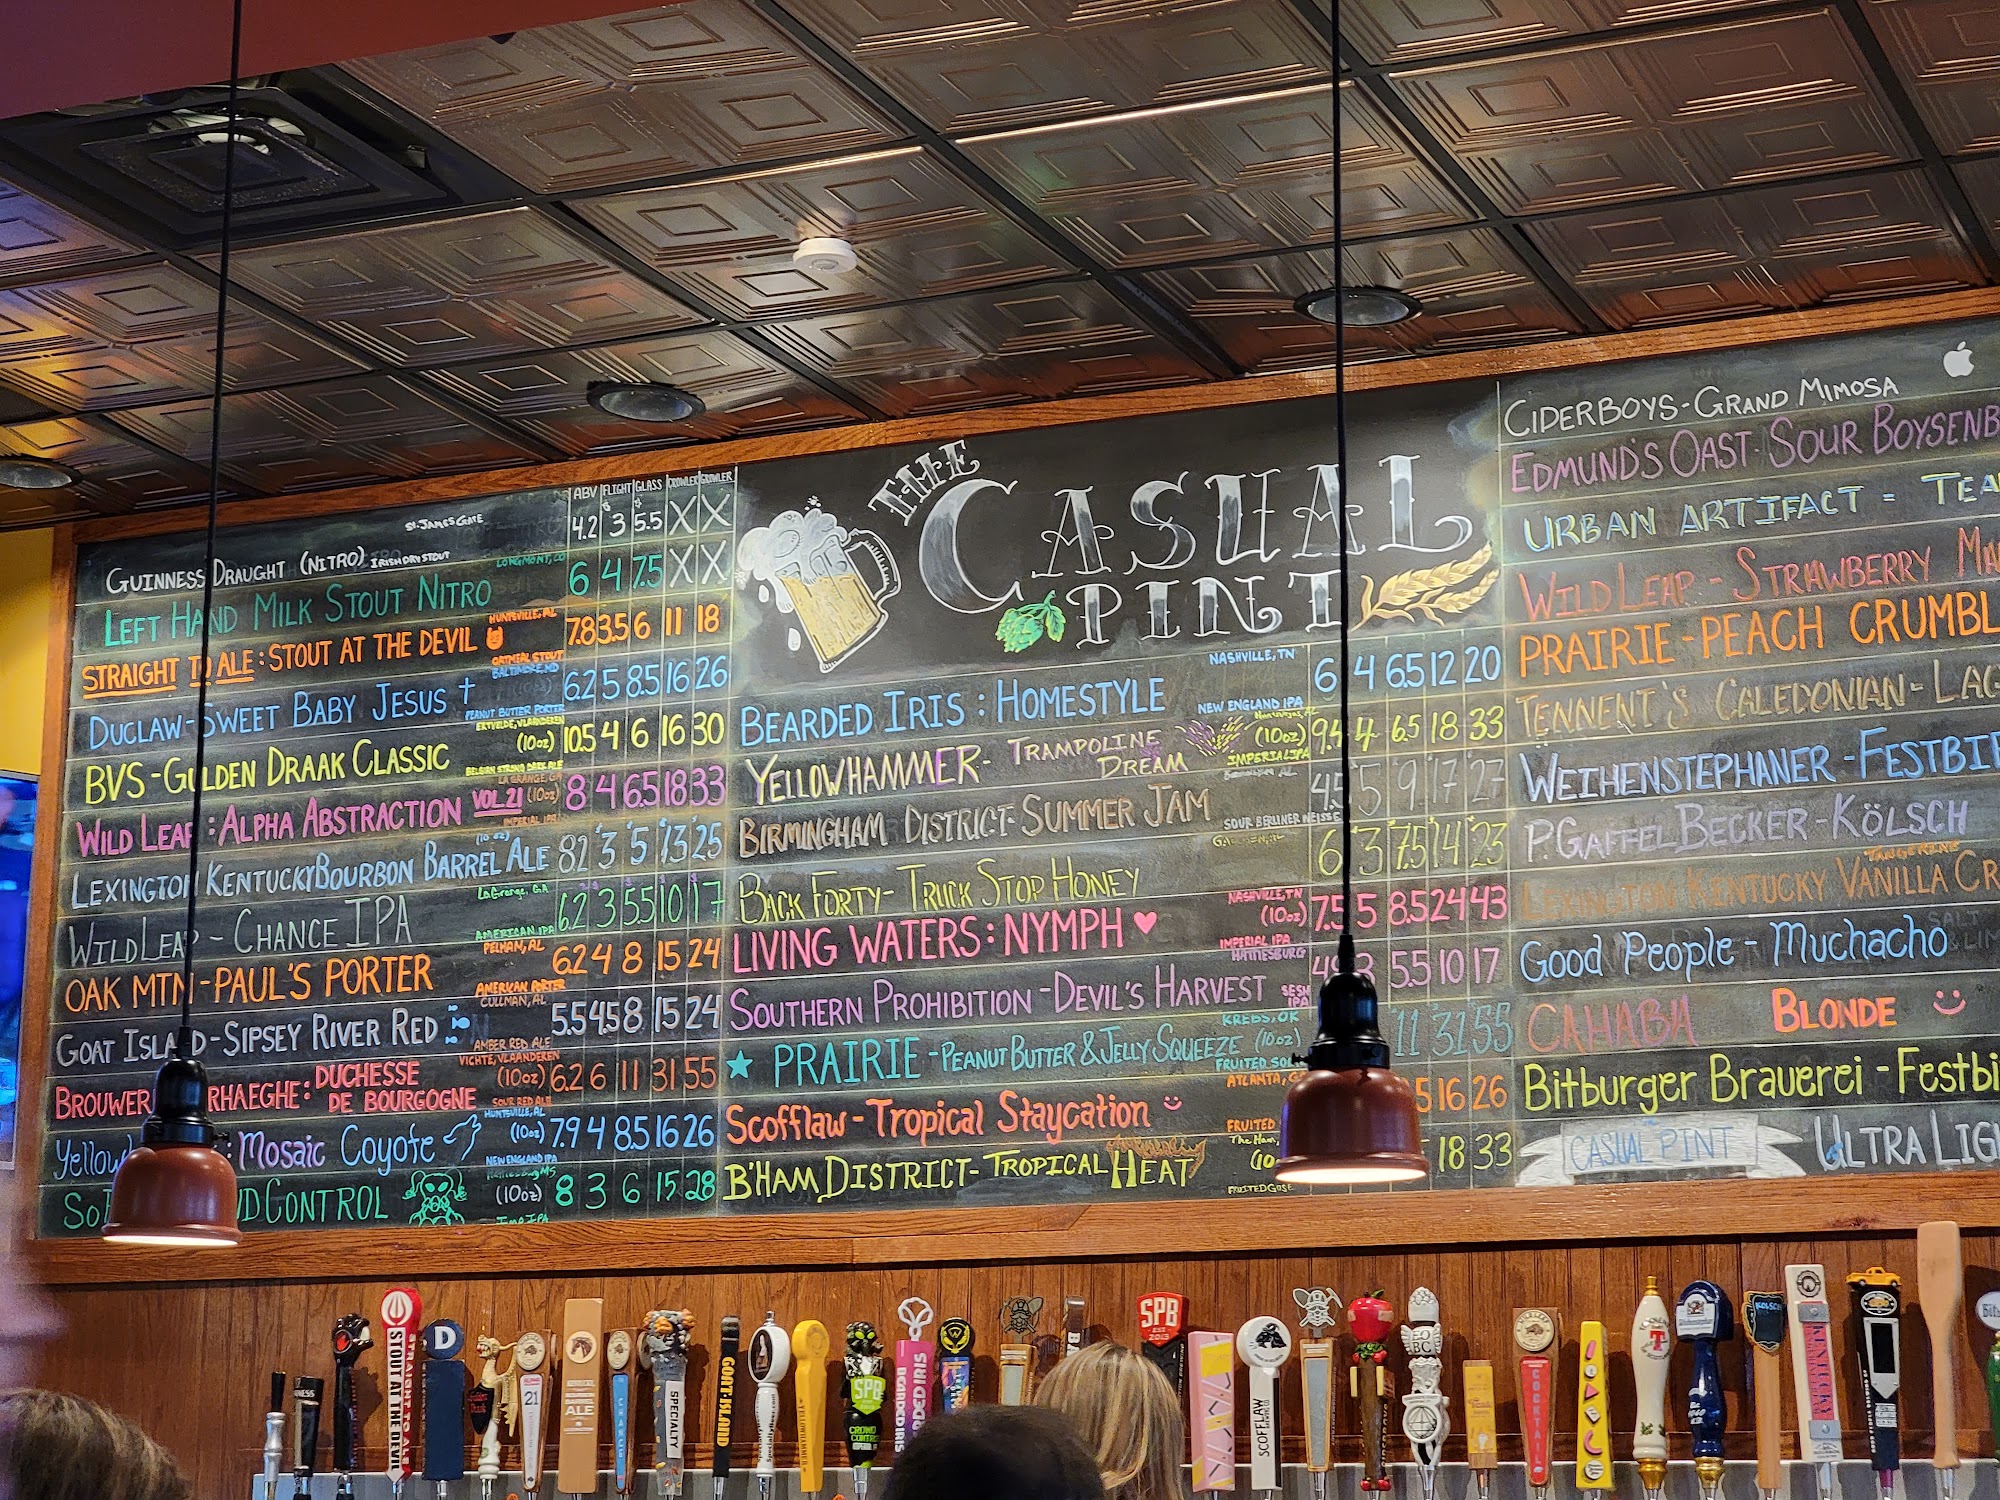 ABV FLIGHT GLASS CROWLER GROWLER
ST. JAMES GATE
GUINNESS DRAUGHT (NITRO) IRISH DRY STOUT 4.2 3 5.5 X X
LONGMONT, CO
LEFT HAND MILK STOUT NITRO 6 4 7.5 X X
HUNTSVILLE, AL
STRAIGHT TO ALE: STOUT AT THE DEVIL 7.8 3.5 6 11 18
OATMEAL STOUT
BALTIMORE, MD
DUCLAW-SWEET BABY JESUS † 6.2 5 8.5 16 26
PEANUT BUTTER PORTER
ERTVELDE, VLAANDEREN
BVS-GULDEN DRAAK CLASSIC (10oz) 10.5 4 6 16 30
BELGIAN STRONG DARK ALE
LA GRANGE, GA
WILD LEAP: ALPHA ABSTRACTION VOL 21 (10oz) 8 4 6.5 18 33
IMPERIAL IPA
(10 oz)
LEXINGTON KENTUCKY BOURBON BARREL ALE 8.2 3 5 13 25
LaGrange, GA
WILD LEAP - CHANCE IPA 6.2 3 5.5 10 17
AMERICAN IPA
PELHAM, AL
OAK MTN-PAUL'S PORTER 6.2 4 8 15 24
AMERICAN PORTER
CULLMAN, AL
GOAT ISLAND-SIPSEY RIVER RED 5.5 4.5 8 15 24
AMBER RED ALE
VICHTE, VLAANDEREN
BROUWER RHAEGHE: DUCHESSE DE BOURGOGNE (10oz) 6.2 6 11 31 55
SOUR RED ALE
HUNTSVILLE, AL
Yellow : Mosaic Coyote (10oz) 7.9 4 8.5 16 26
NEW ENGLAND IPA
Hattiesburg, MS
CONTROL (10oz) 8 3 6 15 28
THE CASUAL PINT
NASHVILLE, TN
BEARDED IRIS: HOMESTYLE 6 4 6.5 12 20
NEW ENGLAND IPA
YELLOWHAMMER- TRAMPOLINE DREAM (10oz) 9.4 4 6.5 18 33
IMPERIAL IPA
BIRMINGHAM DISTRICT-SUMMER JAM 4.5 5 9 17 27
SOUR BERLINER WEISSE
BACK FORTY-TRUCK STOP HONEY 6 3 7.5 14 23
NASHVILLE, TN
LIVING WATERS: NYMPH ♥ (10oz) 7.5 5 8.5 24 43
IMPERIAL IPA
HATTIESBURG
SOUTHERN PROHIBITION-DEVIL'S HARVEST 5.5 10 17
KREBS, OK
★ PRAIRIE-PEANUT BUTTER & JELLY SQUEEZE (10oz) 11 31 55
FRUITED
ATLANTA,
SCOFFLAW-TROPICAL STAYCATION 5 16 26
FRUITED
B'HAM DISTRICT-TROPICAL HEAT 18 33
FRUITED GOSE
CIDERBOYS-GRAND MIMOSA
EDMUND'S OAST-SOUR BOYSENB
URBAN ARTIFACT = TEA
WILD LEAP - STRAWBERRY MA
PRAIRIE-PEACH CRUMBL
TENNENT'S CALEDONIAN-LAG
WEIHENSTEPHANER-FESTBIE
P.GAFFEL BECKER-KÖLSCH
TANGERINE
LEXINGTON KENTUCKY VANILLA CR
Good People - Muchacho
CAHABA BLONDE
Bitburger Brauerei - Festbi
CASUAL PINT ULTRA LIGH
STRAIGHT TO ALE
STOUT AT THE DEVIL
D
21
ALE
CHANCE
SPECIALTY
GOAT·ISLAND
YELLOWHAMMER
SPB
CROWD CONTROL
BEARDED IRIS
SPB
EST. 2013
SCOFFLAW
EOBC
COCKTAIL
T
KÖLSCH
KENTUCKY